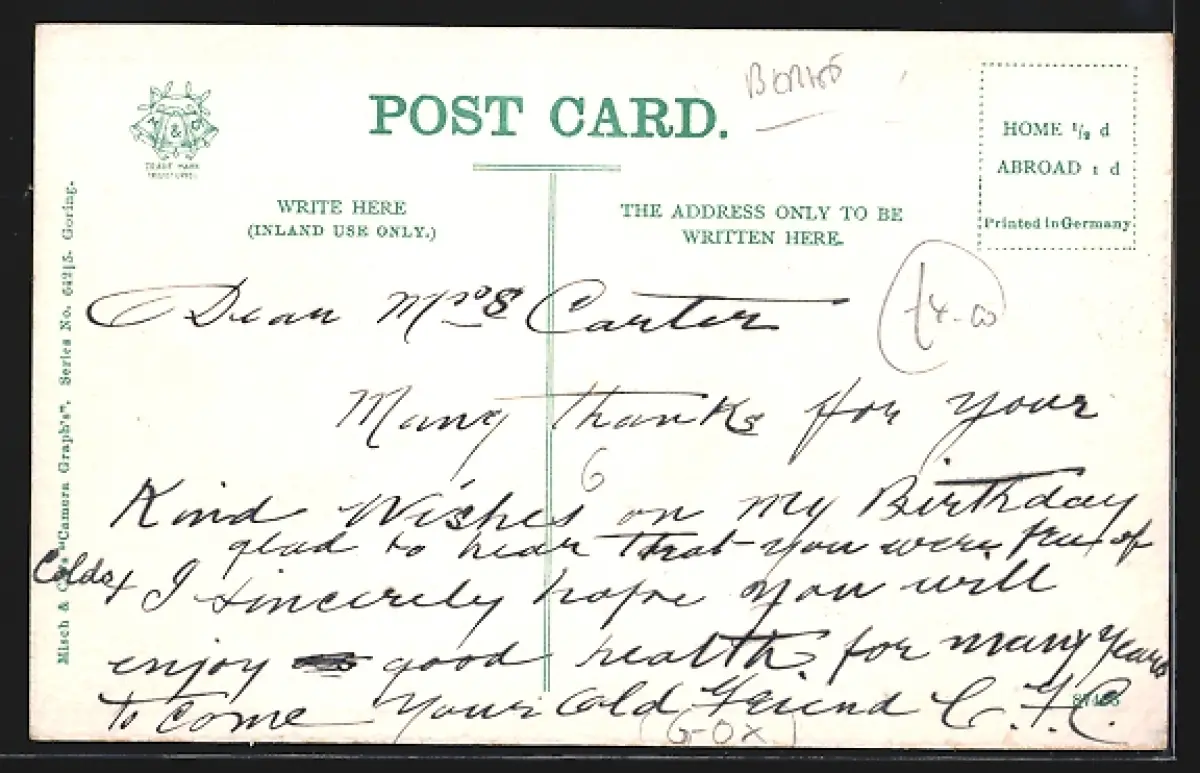 POST CARD.
M & Co
TRADE MARK
HOME ½ d
ABROAD 1 d
Printed in Germany
WRITE HERE
(INLAND USE ONLY.)
THE ADDRESS ONLY TO BE
WRITTEN HERE.
Misch & Co's "Camera Graphs". Series No. 642/5- Goring.
£4-00
Dear Mrs Carter
Many thanks for your
6
Kind Wishes on my Birthday
glad to hear that you were free of
Colds & I sincerely hope you will
enjoy good health for many years
to come Your old Friend C.
(GOX)